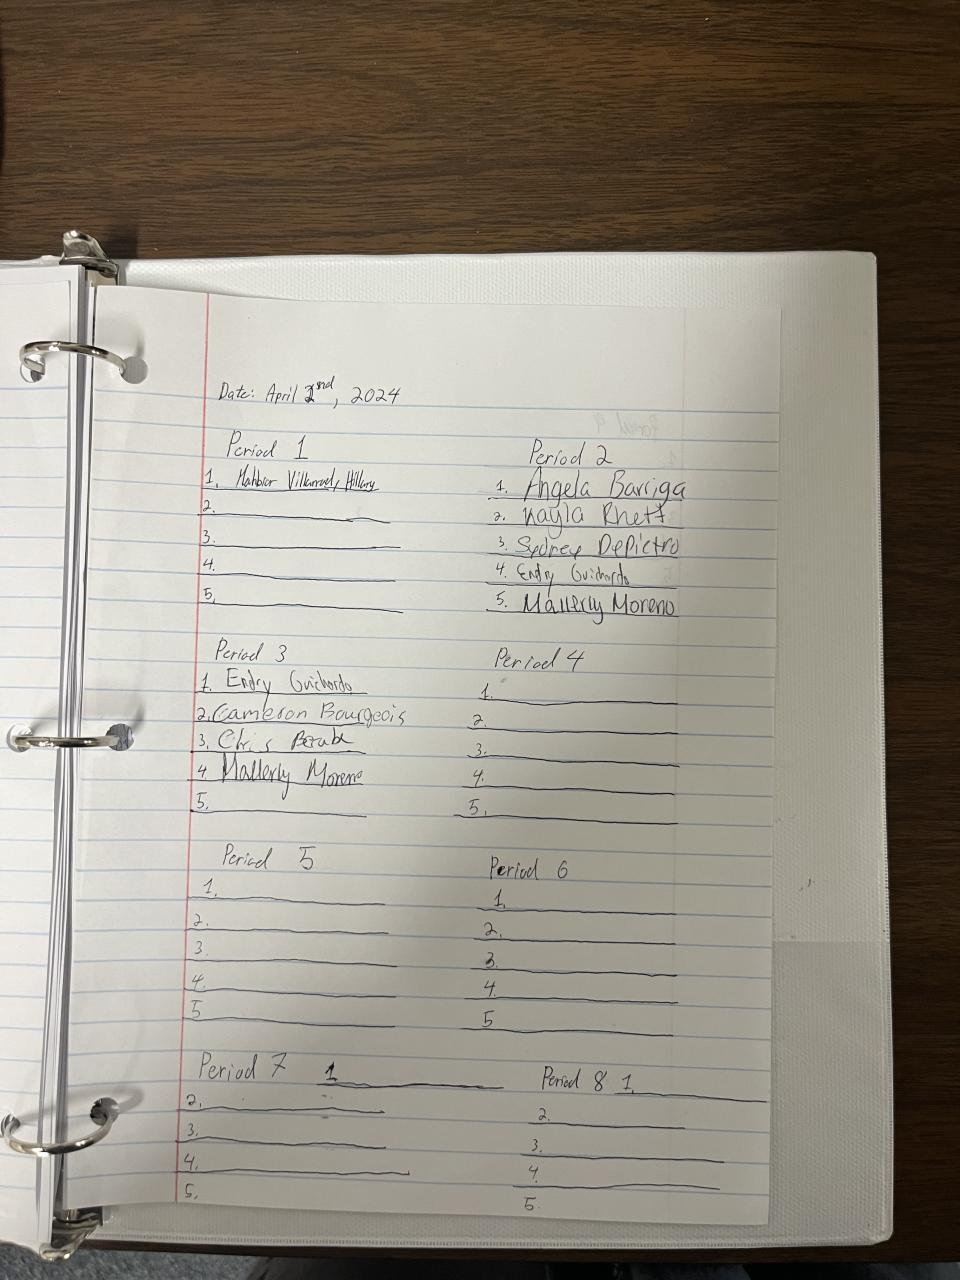 Date: April 2nd, 2024
Period 1
1. Mahbior Villarroel, Hillary
2.
3.
4.
5.
Period 2
1. Angela Barriga
2. Kayla Rhett
3. Sydney DePietro
4. Endry Guichardo
5. Mallerly Moreno
Period 3
1. Endry Guichardo
2. Cameron Bourgeois
3. Chris Berube
4. Mallerly Moreno
5.
Period 4
1.
2.
3.
4.
5.
Period 5
1.
2.
3.
4.
5
Period 6
1.
2.
3.
4.
5
Period 7 1
2.
3.
4.
5.
Period 8 1.
2.
3.
4.
5.